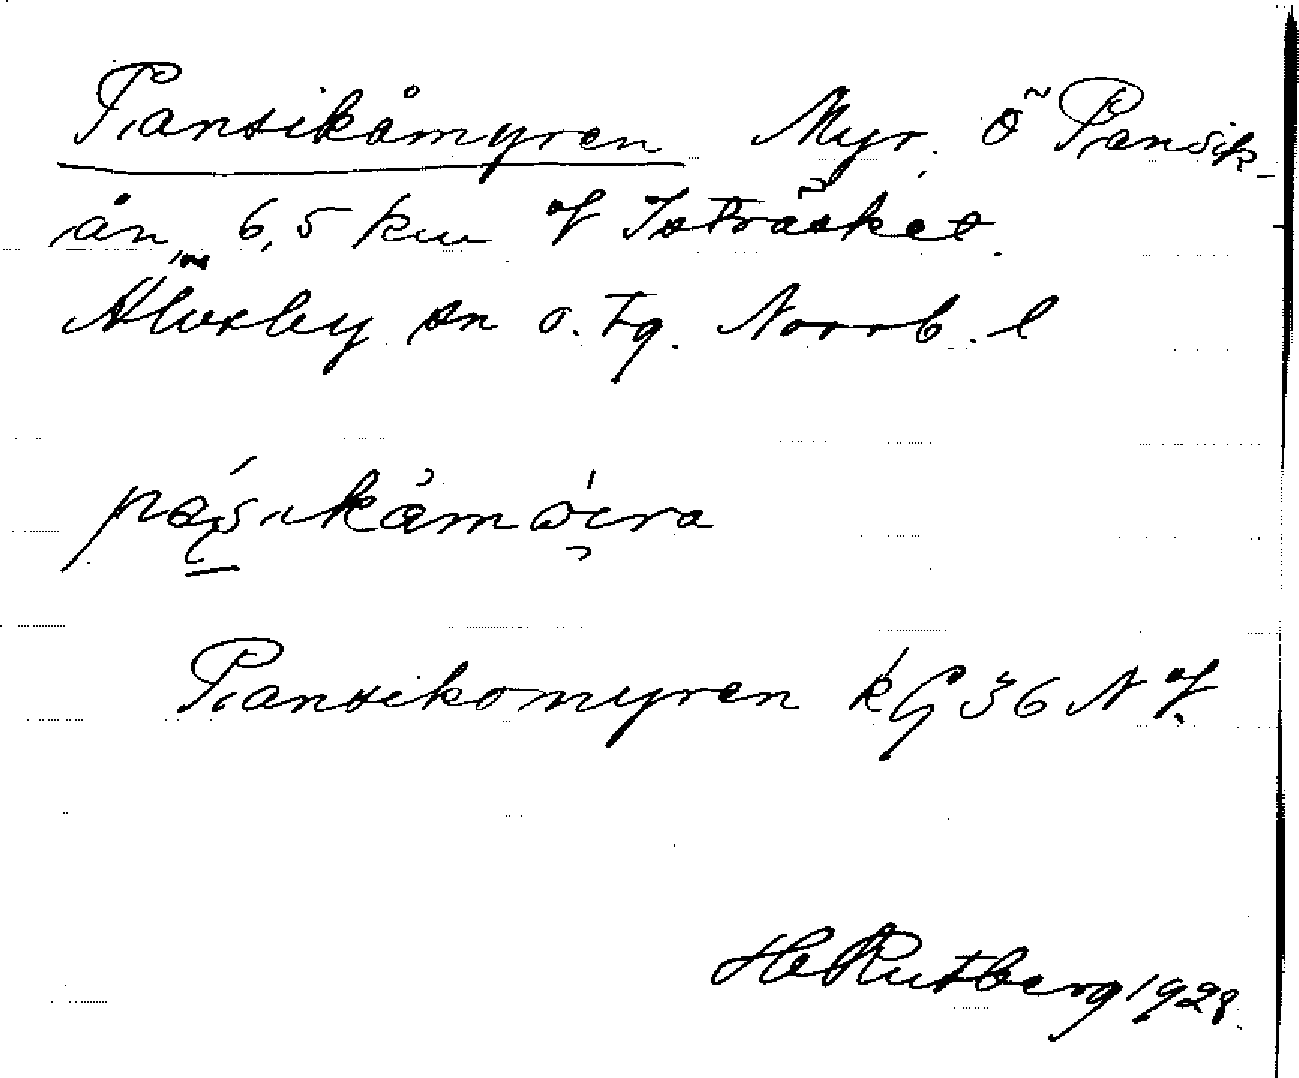 Pansikåmyren Myr. Ö Pansik-
ån, 6,5 km Istråsket.
Älvsby sn o. tg. Norrb. l
Pansikomyren k G 36 N
H Rutberg 1928.